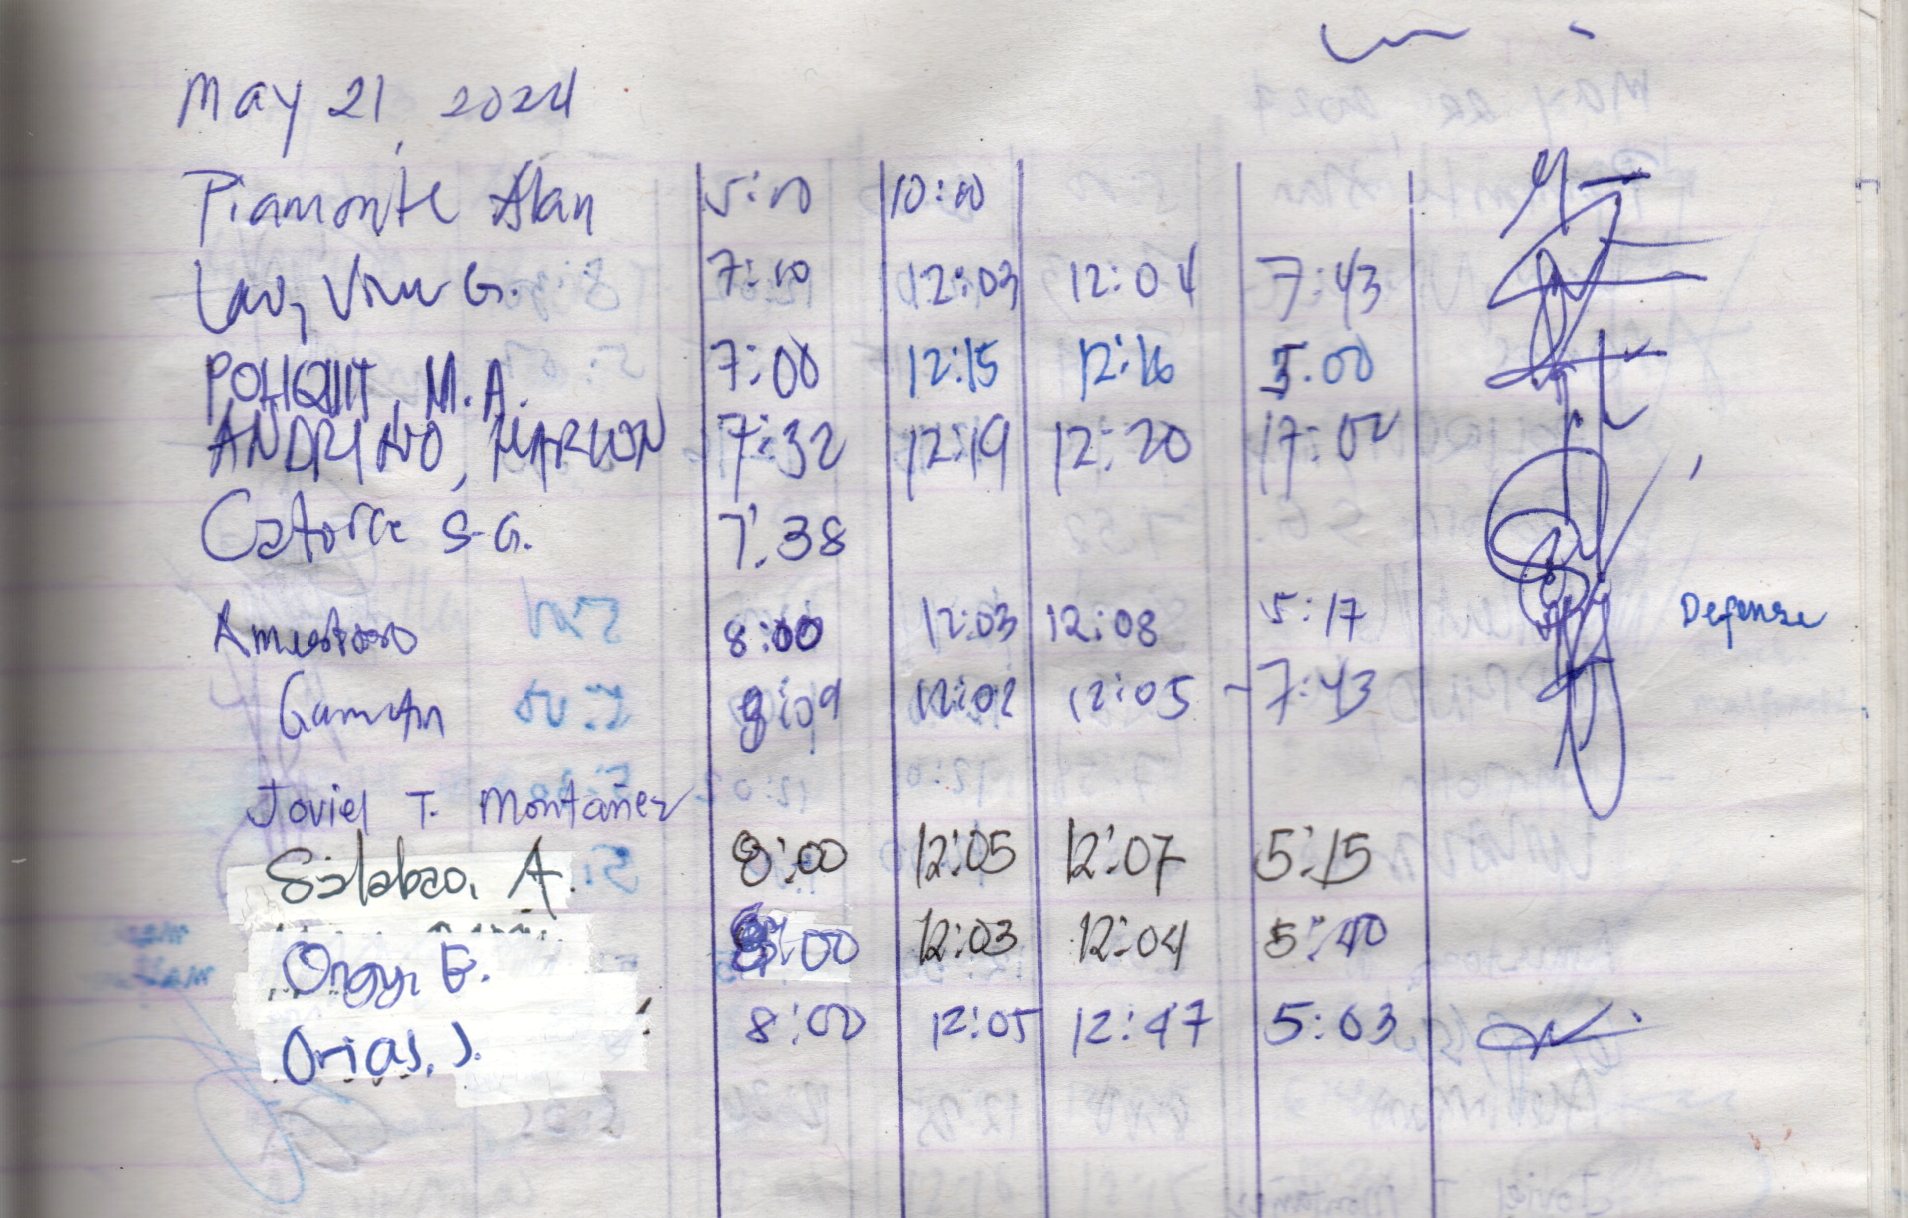 May 21, 2024
Piamonte Alan 5:00 10:00
G. 7:10 12:03 12:04 7:43
POLIQUIT, M.A. 7:00 12:15 12:16 5:00
ANDRINO, MARLON 7:32 12:19 12:20 17:02
Catorce S.G. 7:38
Amestoso 8:00 12:03 12:08 5:17 Defense
8:09 12:02 12:05 7:43
Joviel T. Montañez
Salabao, A. 8:00 12:05 12:07 5:15
E. 8:00 12:03 12:04 5:40
Orias, J. 8:00 12:05 12:47 5:03